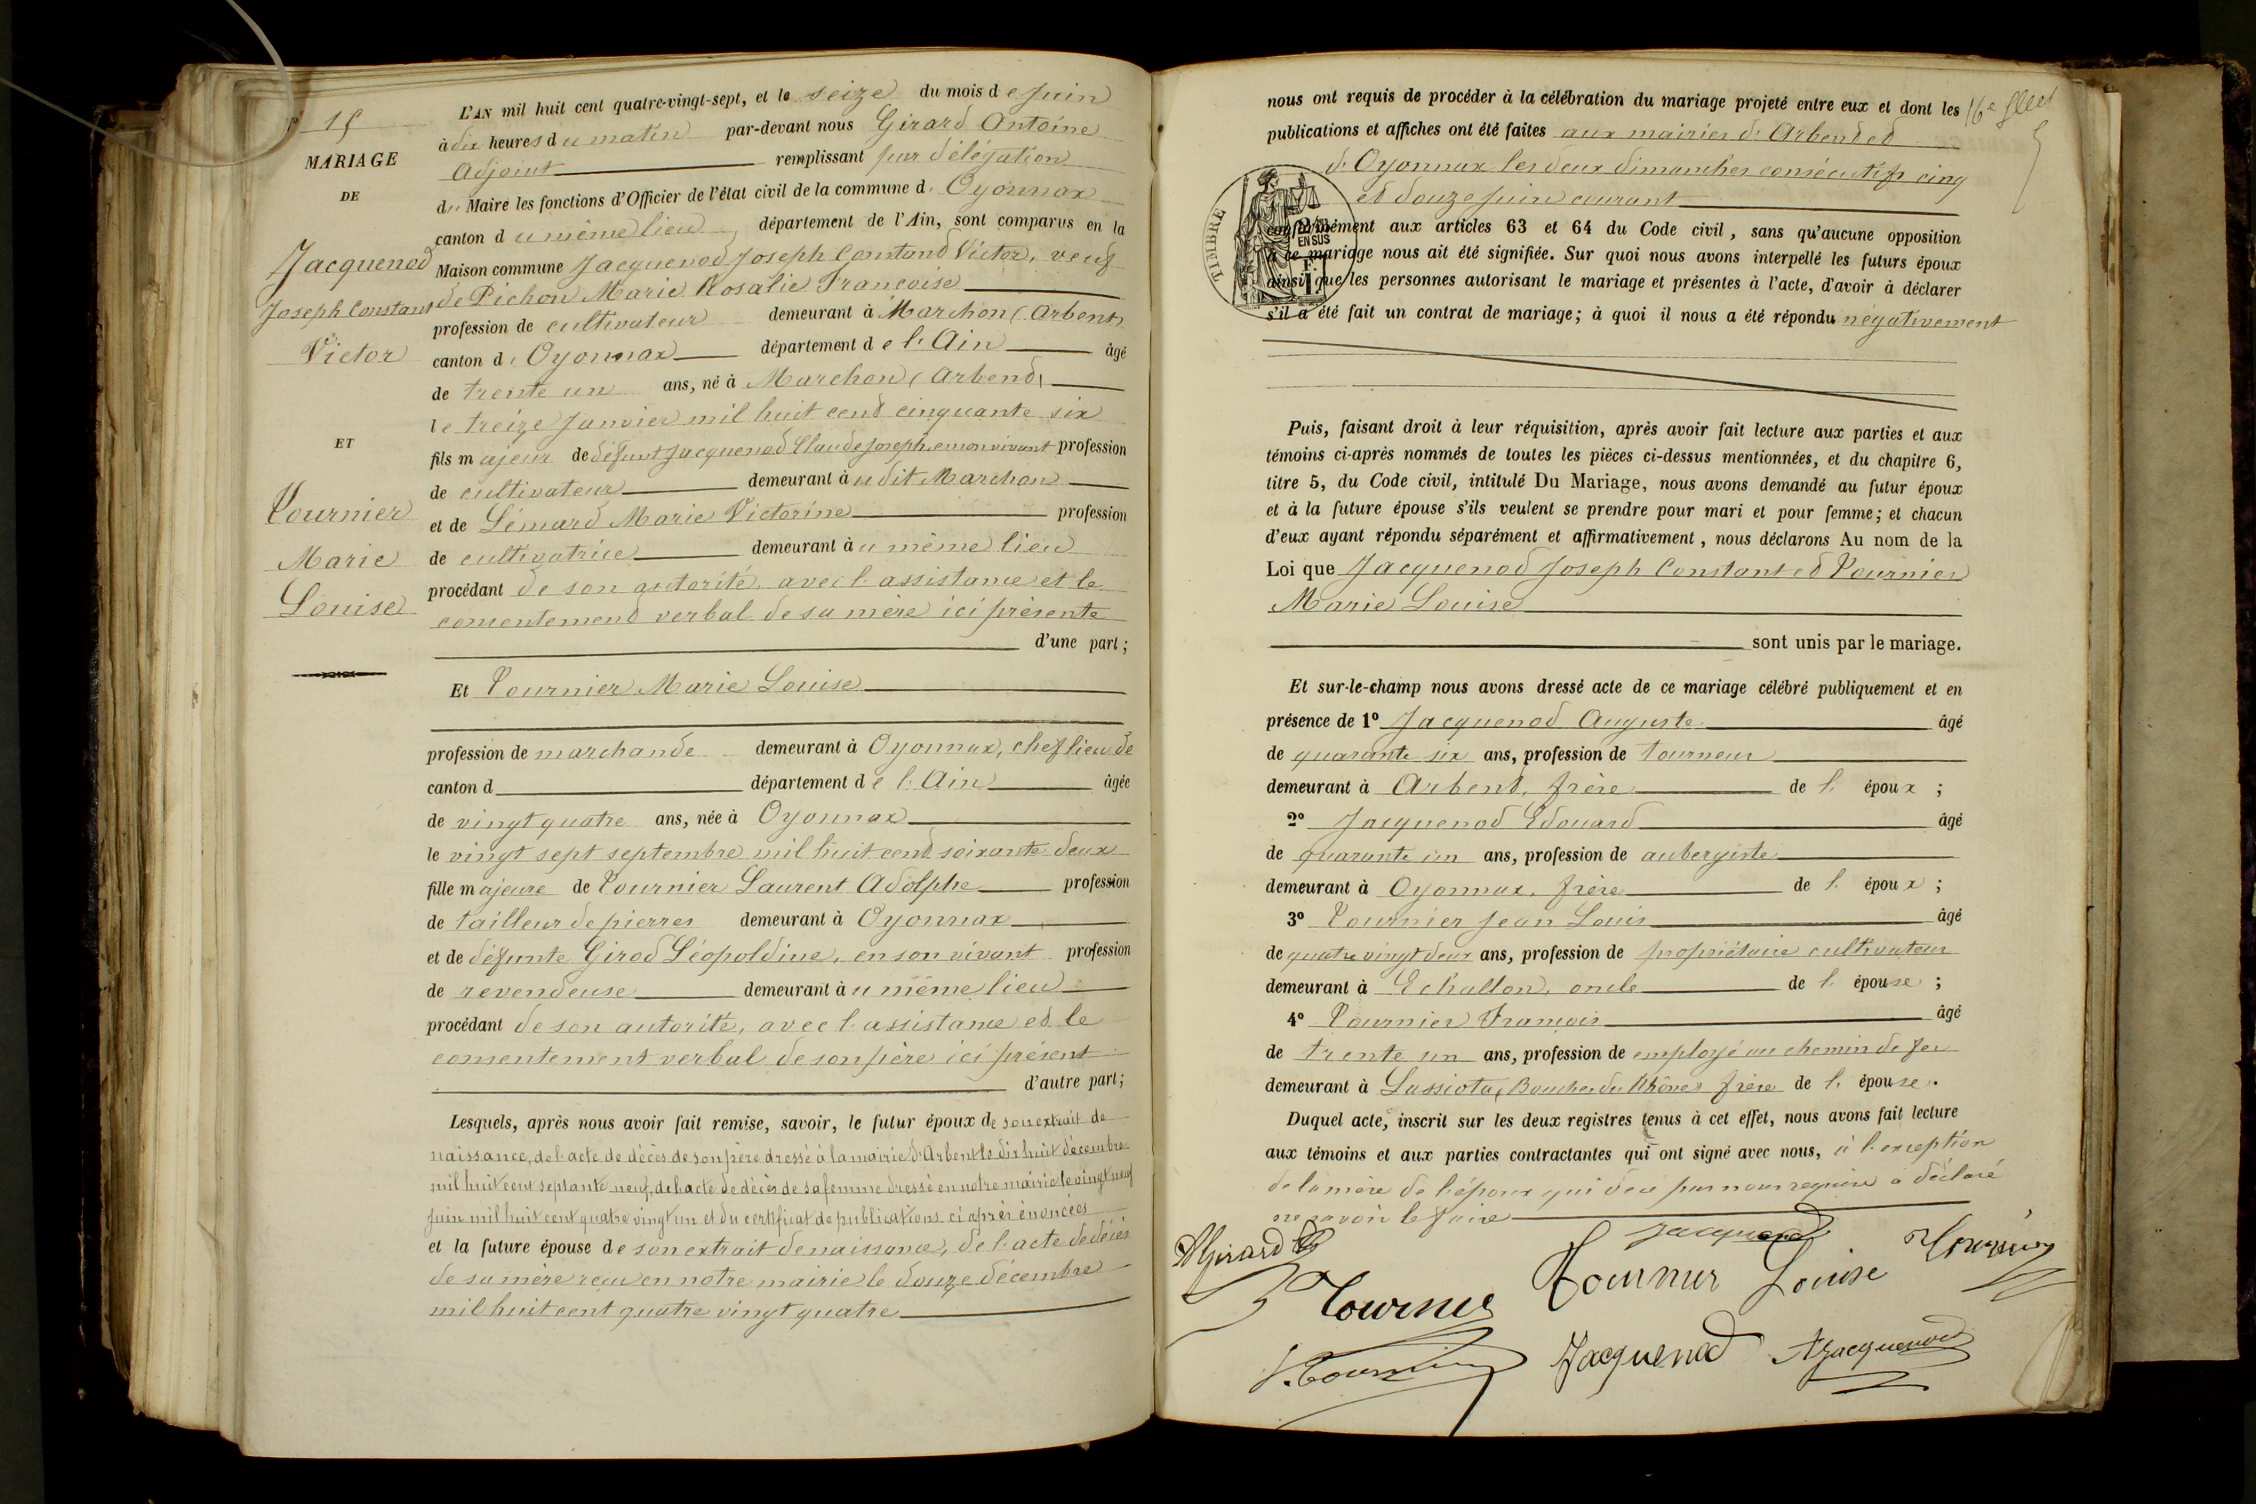 15
MARIAGE
DE
Jacquenod
Joseph Constant
Victor
ET
Tournier
Marie
Louise
L'AN mil huit cent quatre-vingt-sept, et le seize du mois de Juin
à dix heures du matin par-devant nous Girard Antoine
Adjoint remplissant par délégation
du Maire les fonctions d'Officier de l'état civil de la commune d' Oyonnax
canton du même lieu, département de l'Ain, sont comparus en la
Maison commune Jacquenod Joseph Constand Victor, veuf
de Pichon Marie Rosalie Françoise
profession de cultivateur demeurant à Marchon (Arbent)
canton d' Oyonnax département de l'Ain âgé
de trente un ans, né à Marchon (Arbend)
le treize Janvier mil huit cend cinquante six
fils majeur de défunt Jacquenod Claude Joseph, en son vivant profession
de cultivateur demeurant audit Marchon
et de Lémard Marie Victorine profession
de cultivatrice demeurant au même lieu
procédant de son autorité, avec l'assistance et le
consentemend verbal de sa mère ici présente
d'une part;
Et Tournier Marie Louise
profession de marchande demeurant à Oyonnax, chef lieu de
canton d département de l'Ain âgée
de vingt quatre ans, née à Oyonnax
le vingt sept septembre mil huit cend soixante deux
fille majeure de Tournier Laurent Adolphe profession
de tailleur de pierres demeurant à Oyonnax
et de défunte Girod Léopoldine, en son vivant profession
de revendeuse demeurant au même lieu
procédant de son autorité, avec l'assistance ed le
consentement verbal de son père ici présent
d'autre part;
Lesquels, après nous avoir fait remise, savoir, le futur époux de son extrait de
naissance, de l'acte de décès de son père dressé à la mairie d'Arbent le dix huit décembre
mil huit cent septante neuf, de l'acte de décès de sa femme dressé en notre mairie le vingt neuf
Juin mil huit cent quatre vingt un et du certificat de publications ci après énoncées
et la future épouse de son extrait de naissance, de l'acte de décès
de sa mère reçu en notre mairie le douze décembre
mil huit cent quatre vingt quatre
16e fllet
nous ont requis de procéder à la célébration du mariage projeté entre eux et dont les
publications et affiches ont été faites aux mairies d'Arbend ed
d'Oyonnax les deux dimanches consécutifs cinq
et douze Juin courant
TIMBRE
EN SUS
conformément aux articles 63 et 64 du Code civil, sans qu'aucune opposition
à ce mariage nous ait été signifiée. Sur quoi nous avons interpellé les futurs époux
ainsi que les personnes autorisant le mariage et présentes à l'acte, d'avoir à déclarer
s'il a été fait un contrat de mariage; à quoi il nous a été répondu négativement
Puis, faisant droit à leur réquisition, après avoir fait lecture aux parties et aux
témoins ci-après nommés de toutes les pièces ci-dessus mentionnées, et du chapitre 6,
titre 5, du Code civil, intitulé Du Mariage, nous avons demandé au futur époux
et à la future épouse s'ils veulent se prendre pour mari et pour femme; et chacun
d'eux ayant répondu séparément et affirmativement, nous déclarons Au nom de la
Loi que Jacquenod Joseph Constant ed Tournier
Marie Louise
sont unis par le mariage.
Et sur-le-champ nous avons dressé acte de ce mariage célébré publiquement et en
présence de 1° Jacquenod Auguste âgé
de quarante six ans, profession de tourneur
demeurant à Arbend, frère de l' époux;
2° Jacquenod Edouard âgé
de quarante un ans, profession de aubergiste
demeurant à Oyonnax, frère de l' époux;
3° Tournier Jean Louis âgé
de quatre vingt deux ans, profession de propriétaire cultivateur
demeurant à Echallon, oncle de l' épouse;
4° Tournier François âgé
de trente un ans, profession de employé au chemin de fer
demeurant à Lassiota, Bouches du Rhône, frère de l' épouse.
Duquel acte, inscrit sur les deux registres tenus à cet effet, nous avons fait lecture
aux témoins et aux parties contractantes qui ont signé avec nous, à l'exception
de la mère de l'époux qui de ce par nous requise a déclaré
ne savoir le faire
AGirard
Jacquenod
Tournier
Tournier Louise
Tournier
F. Tournier
Jacquenod
AJacquenod